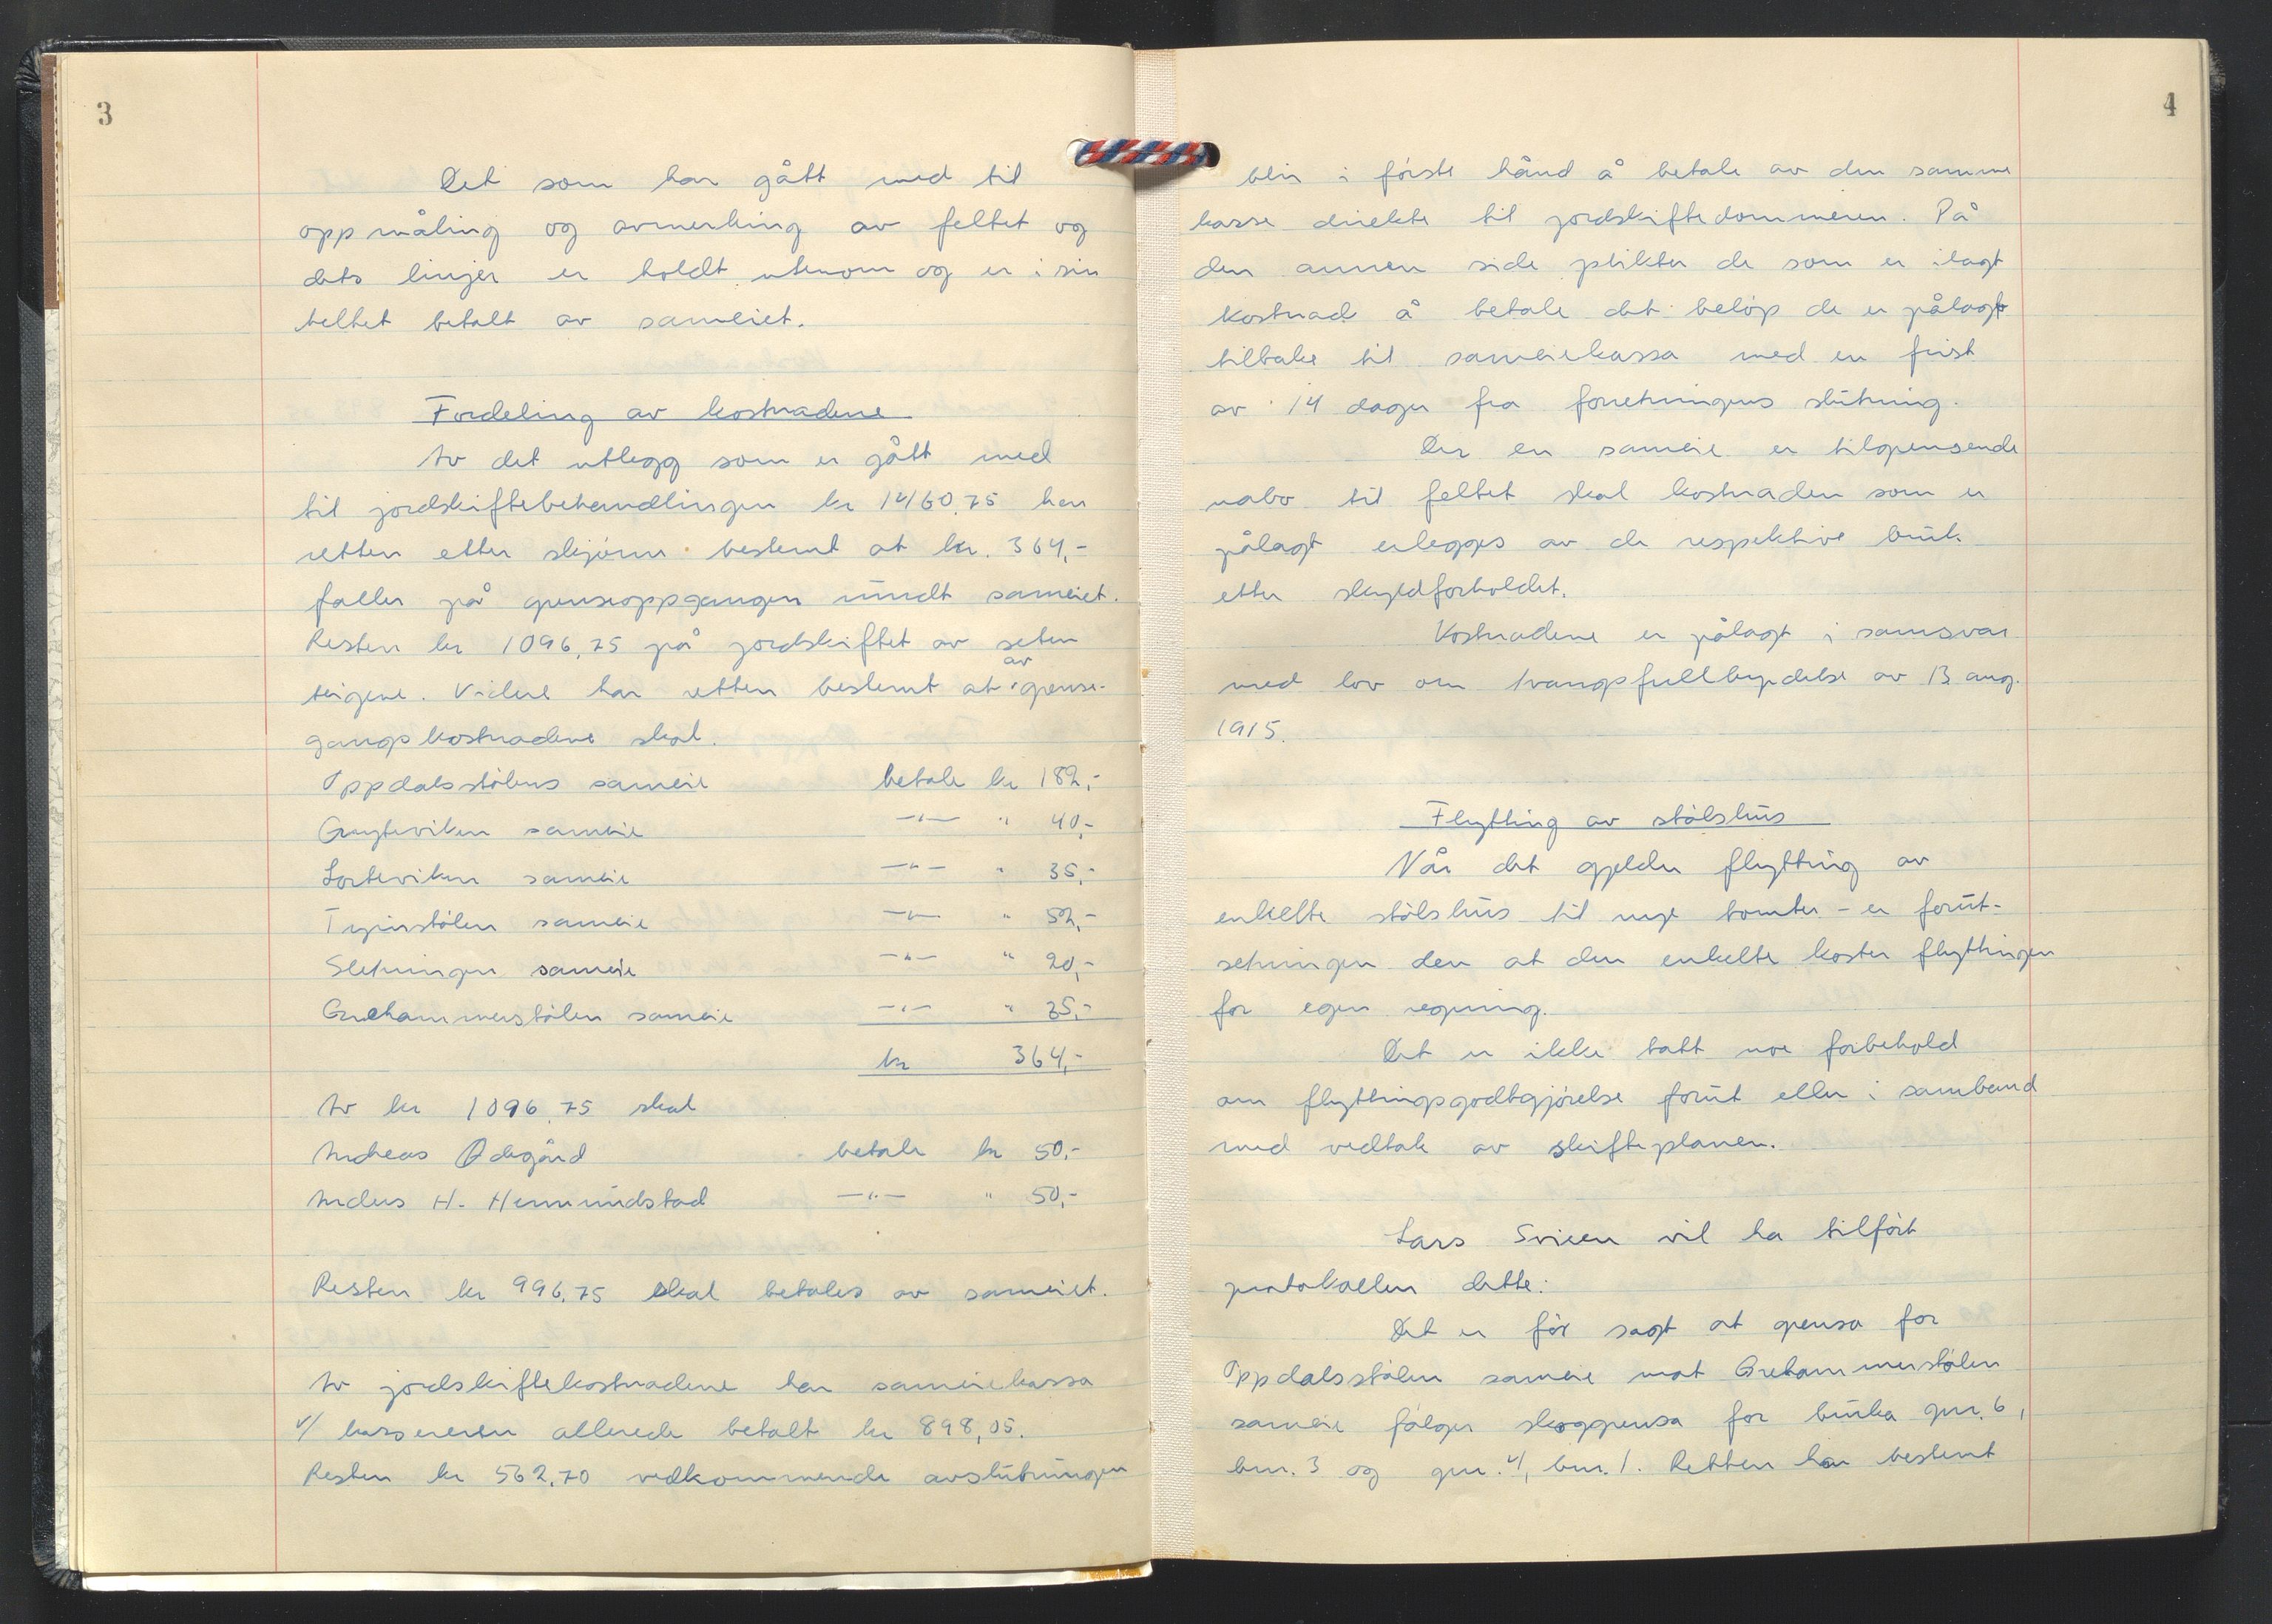 3
Det som har gått med til
oppmåling og avmerking av feltet og
dets linjer er holdt utenom og er i sin
helhet betalt av sameiet.
Fordeling av kostnadene
Av det utlegg som er gått med
til jordskiftebehandlingen kr 1460,75 har
retten etter skjønn bestemt at kr. 364,-
faller på grenseoppgangen rundt sameiet.
Resten kr 1096,75 på jordskiftet av seter
teigene. Videre har retten bestemt at av grense-
gangskostnadene skal.
Oppdalsstølens sameie betale kr 182,-
Grøyteviken sameie —"— " 40,-
Lorteviken sameie —"— " 35,-
Tyinstølen sameie —"— " 52,-
Sletningen sameie —"— " 20,-
Grehammerstølen sameie —"— " 35,-
kr 364,-
Av kr 1096,75 skal
Andreas Ødegård betale kr 50,-
Anders H. Hermundstad —"— " 50,-
Resten kr 996,75 skal betales av sameiet.
Av jordskiftekostnadene har sameiekassa
v/ kassereren allerede betalt kr 898,05.
Resten kr 562,70 vedkommende avslutningen
4
blir i første hånd å betale av den samme
kasse direkte til jordskiftedommeren. På
den annen side plikter de som er ilagt
kostnad å betale det beløp de er pålagt
tilbake til sameiekassa med en frist
av 14 dager fra forretningens slutning.
Der en sameie er tilgrensende
nabo til feltet skal kostnaden som er
pålagt erlegges av de respektive bruk
etter skyldforholdet.
Kostnadene er pålagt i samsvar
med lov om tvangsfullbyrdelse av 13 aug.
1915.
Flytting av stølshus
Når det gjelder flytting av
enkelte stølshus til nye tomter - er forut-
setningen den at den enkelte koster flyttingen
for egen regning.
Det er ikke tatt noe forbehold
om flyttingsgodtgjørelse forut eller i samband
med vedtak av skifteplanen.
Lars Svieen vil ha tilført
protokollen dette:
Det er før sagt at grensa for
Oppdalsstølen sameie mot Grehammerstølen
sameie følger skoggrensa for bruka gnr. 6,
bnr. 3 og gnr. 4, bnr. 1. Retten har bestemt